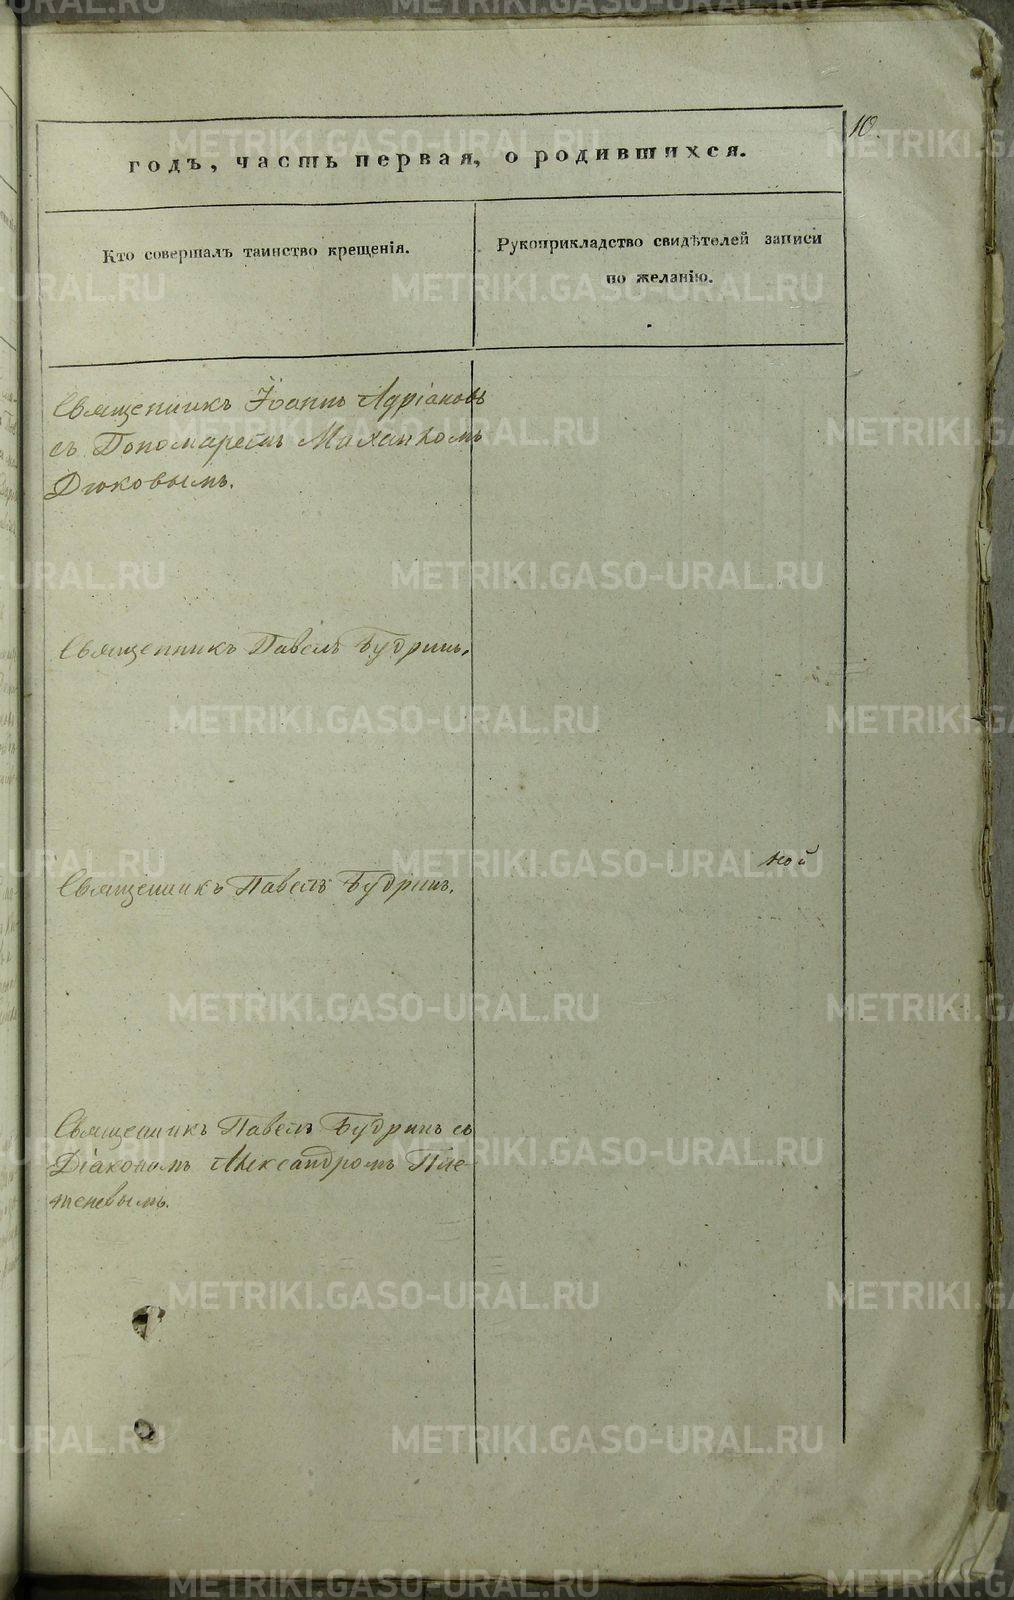 10.
годъ, часть первая, о родившихся.
Кто совершалъ таинство крещенія.
Рукоприкладство свидѣтелей записи
по желанію.
Священникъ Іоаннъ Адріановъ
съ Пономаремъ
Дюковымъ.
Священникъ Павелъ Будринъ.
ной
Священникъ Павелъ Будринъ.
Священникъ Павелъ Будринъ съ
Діакономъ Александромъ Пле-
теневымъ.
METRIKI.GASO-URAL.RU